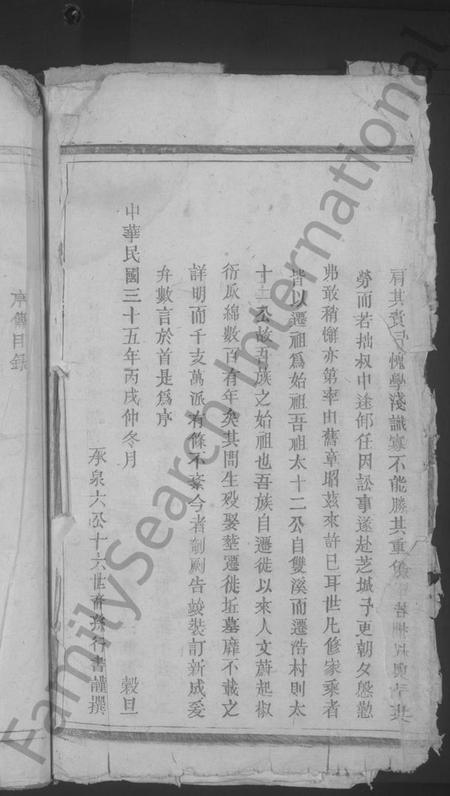 肩其責只愧學淺識寡不能勝其重
勞而若拙叔中途卸任因訟事遂赴芝城予更朝夕慇懃
弗敢稍懈亦第率由舊章昭茲來許已耳世凡修家乘者
皆以遷祖爲始祖吾祖太十二公自雙溪而遷浩村則太
十二公故吾族之始祖也吾族自遷徙以來人文蔚起椒
衍瓜綿數百有年矣其間生歿娶塟遷徙坵墓靡不載之
詳明而千支萬派有條不紊今者剞劂告竣裝訂新成爰
弁數言於首是爲序
中華民國三十五年丙戌仲冬月 穀旦
永泉六公十六世裔孫行書謹撰
序傳目錄
FamilySearch International